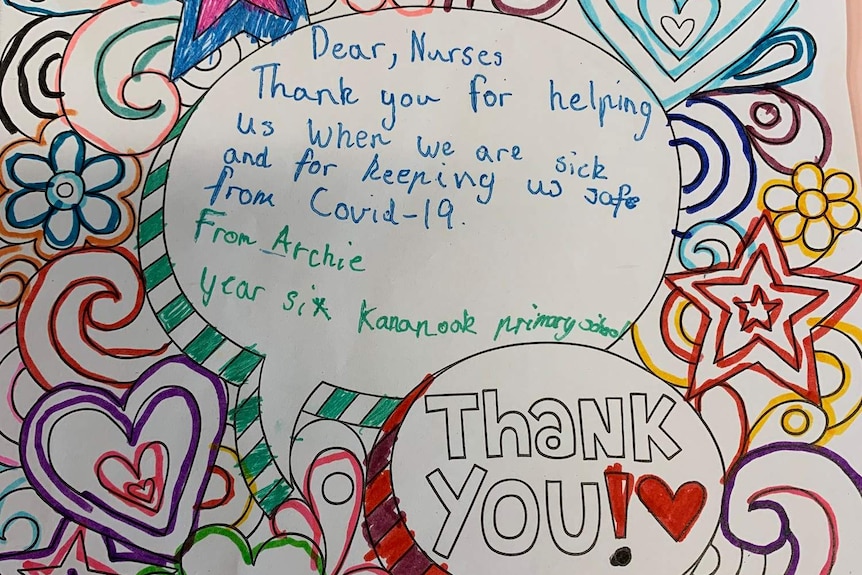 Dear, Nurses
Thank you for helping
us when we are sick
and for keeping us safe
from Covid-19.
From Archie
year six Kananook primary school
Thank
You!